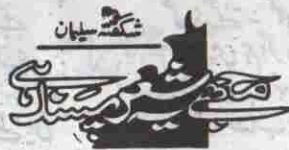 شگفتہ سلیمان
مجھے یہ شعر پسند ہے